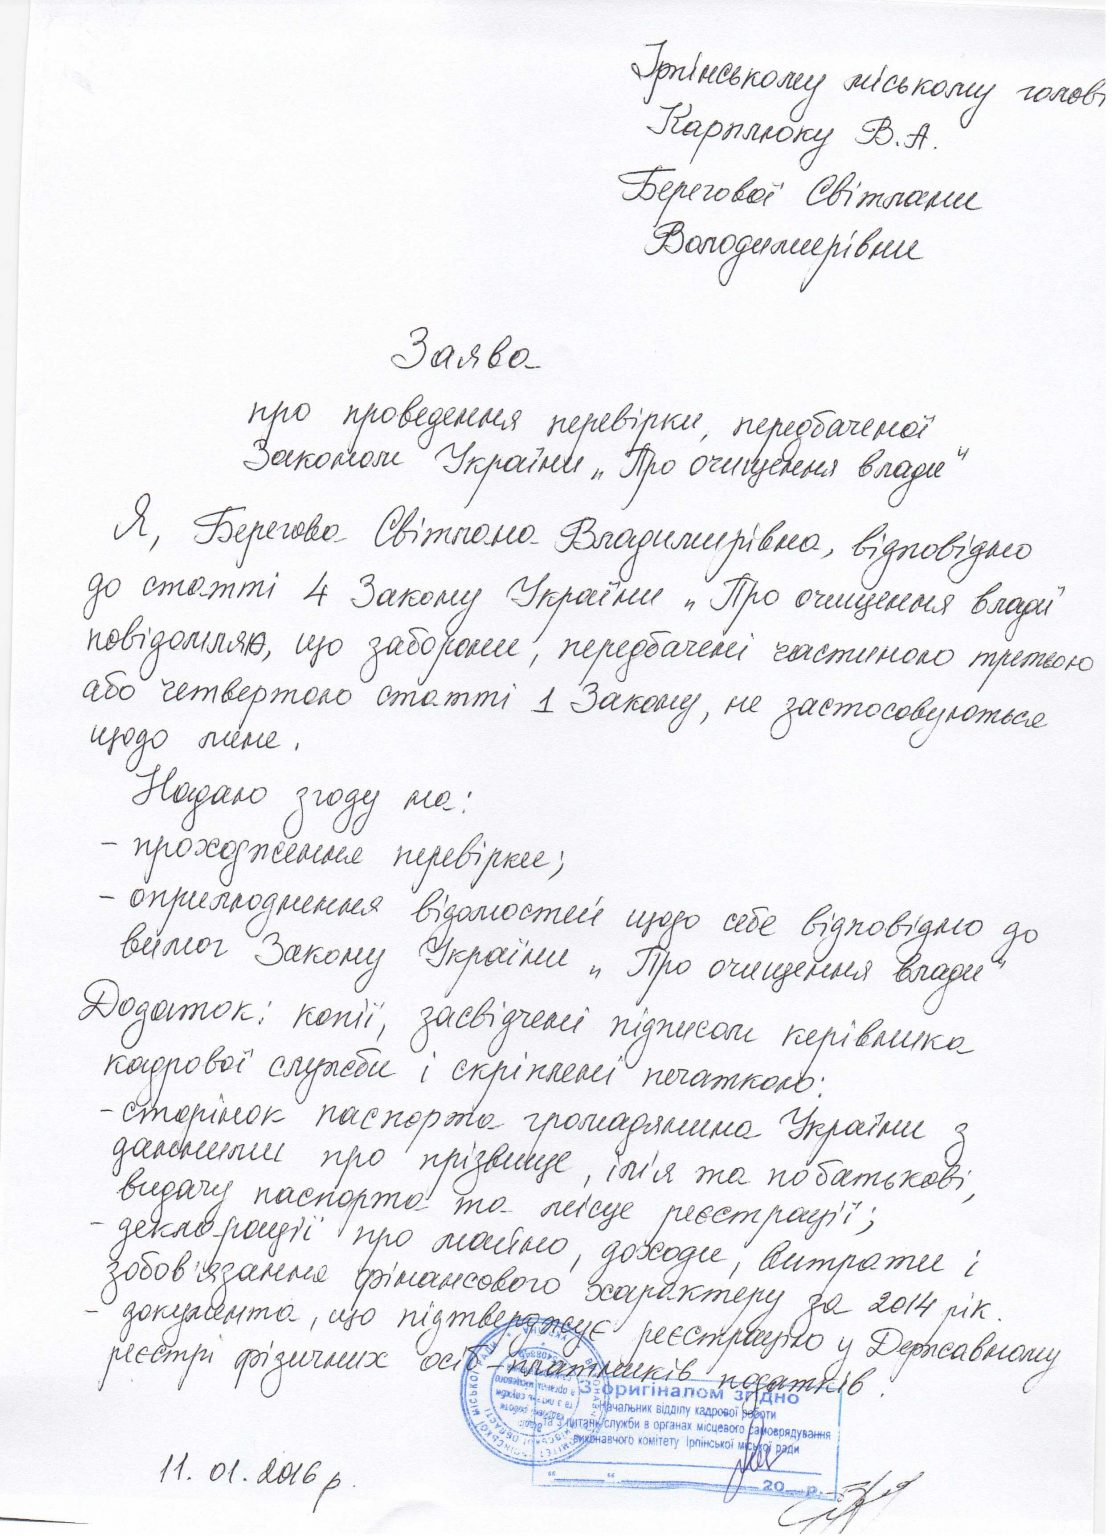 Ірпінському міському голові
Карплюку В.А.
Берегової Світлани
Володимирівни
Заява
про проведення перевірки, передбаченої
Законом України „Про очищення влади“
Я, Берегова Світлана Владимирівна, відповідно
до статті 4 Закону України „Про очищення влади“
повідомляю, що заборони, передбачені частиною третьою
або четвертою статті 1 Закону, не застосовуються
щодо мене.
Надаю згоду на:
- проходження перевірки;
- оприлюднення відомостей щодо себе відповідно до
вимог Закону України „Про очищення влади“
Додаток: копії, засвідчені підписом керівника
кадрової служби і скріплені печаткою:
- сторінок паспорта громадянина України з
данними про прізвище, ім'я та по батькові,
видачу паспорта та місце реєстрації;
- декларації про майно, доходи, витрати і
зобов'язання фінансового характеру за 2014 рік.
- документа, що підтверджує реєстрацію у Державному
реєстрі фізичних осіб-платників податків.
З оригіналом згідно
Начальник відділу кадрової роботи
та з питань служби в органах місцевого самоврядування
виконавчого комітету Ірпінської міської ради
“ “ 20 р.
11.01.2016 р.